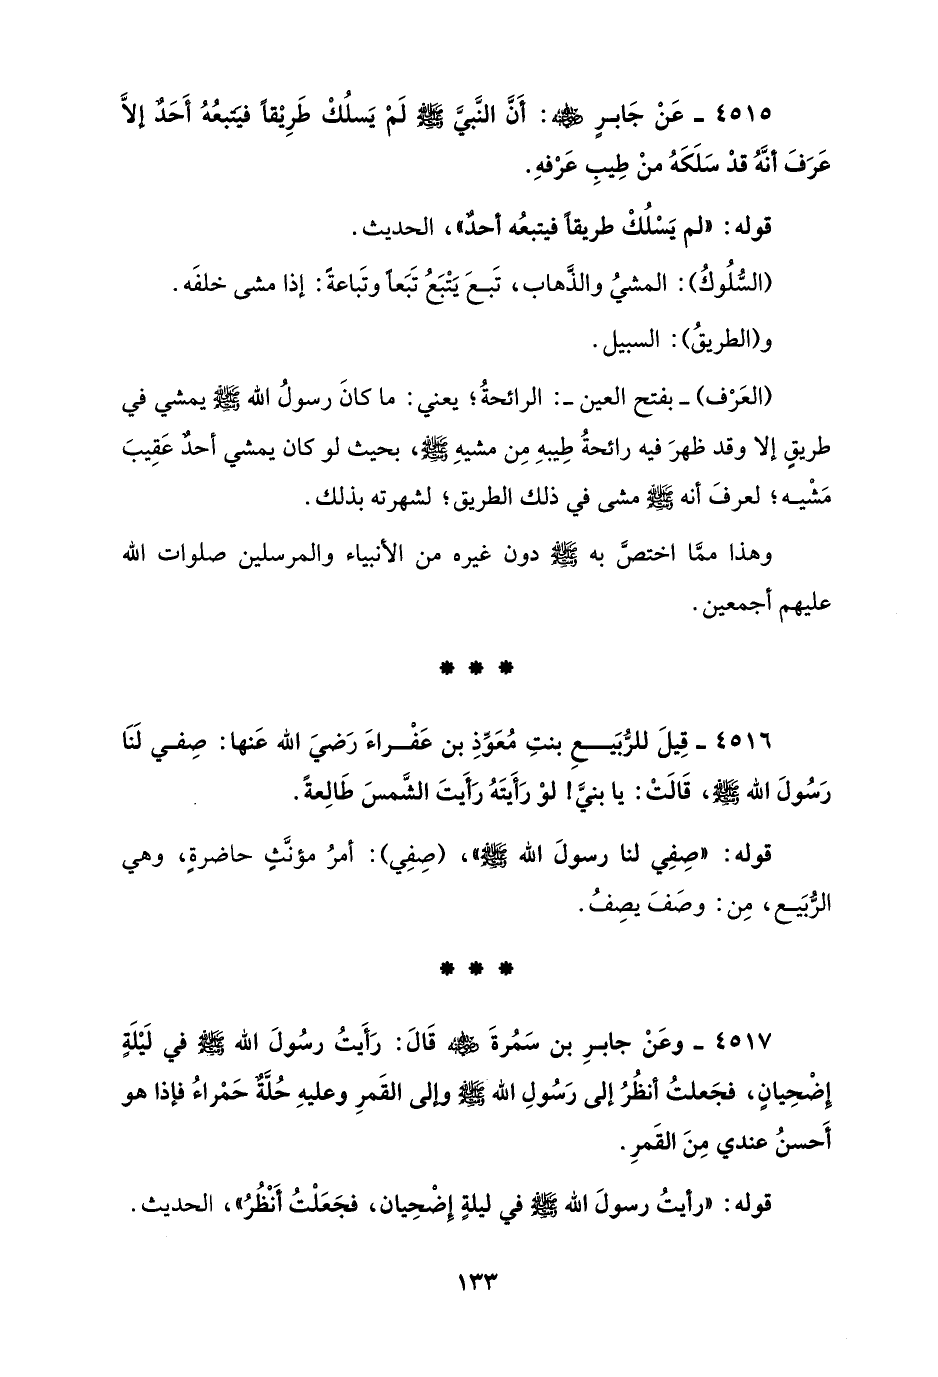 ٤٥١٥ ـ عَنْ جَابـرٍ ﷺ: أَنَّ النَّبيَّ ﷺ لَمْ يَسلُكْ طَرِيْقاً فيَتبعُهُ أَحَدٌ إلاَّ
عَرَفَ أنَّهُ قدْ سَلَكَهُ منْ طِيبِ عَرْفهِ.
قوله: «لم يَسْلُكْ طريقاً فيتبعُه أحدٌ»، الحديث.
(السُّلُوكُ): المشيُ والذَّهاب، تَبـعَ يَتْبَعُ تَبَعاً وتَباعةً: إذا مشى خلفَه.
و(الطريقُ): السبيل.
(العَرْف) ـ بفتح العين ـ: الرائحةُ؛ يعني: ما كانَ رسولُ الله ﷺ يمشي في
طريقٍ إلا وقد ظهرَ فيه رائحةُ طِيبهِ مِن مشيهِ ﷺ، بحيث لو كان يمشي أحدٌ عَقِيبَ
مَشْيـه؛ لعرفَ أنه ﷺ مشى في ذلك الطريق؛ لشهرته بذلك.
وهذا ممَّا اختصَّ به ﷺ دون غيره من الأنبياء والمرسلين صلوات الله
عليهم أجمعين.
* * *
٤٥١٦ ـ قِيلَ للرُّبَيـــعِ بنتِ مُعَوِّذِ بن عَفْـراءَ رَضيَ الله عَنها: صِفـي لَنَا
رَسُولَ الله ﷺ، قَالَتْ: يا بنيَّ! لوْ رَأَيتَهُ رَأَيتَ الشَّمسَ طَالِعةً.
قوله: «صِفِي لنا رسولَ الله ﷺ»، (صِفِي): أمرُ مؤنَّثٍ حاضرةٍ، وهي
الرُّبَيـع، مِن: وصَفَ يصِفُ.
* * *
٤٥١٧ ـ وعَنْ جابرِ بن سَمُرةَ ﵁ قَالَ: رَأَيتُ رسُولَ الله ﷺ في لَيْلَةٍ
إِضْحِيانٍ، فجَعلتُ أنظُرُ إلى رَسُولِ الله ﷺ وإلى القَمرِ وعليهِ حُلَّةٌ حَمْراءُ فإذا هو
أَحسنُ عندي مِنَ القَمرِ.
قوله: «رأيتُ رسولَ الله ﷺ في ليلةٍ إِضْحِيان، فجَعَلْتُ أَنْظُرُ»، الحديث.
١٣٣